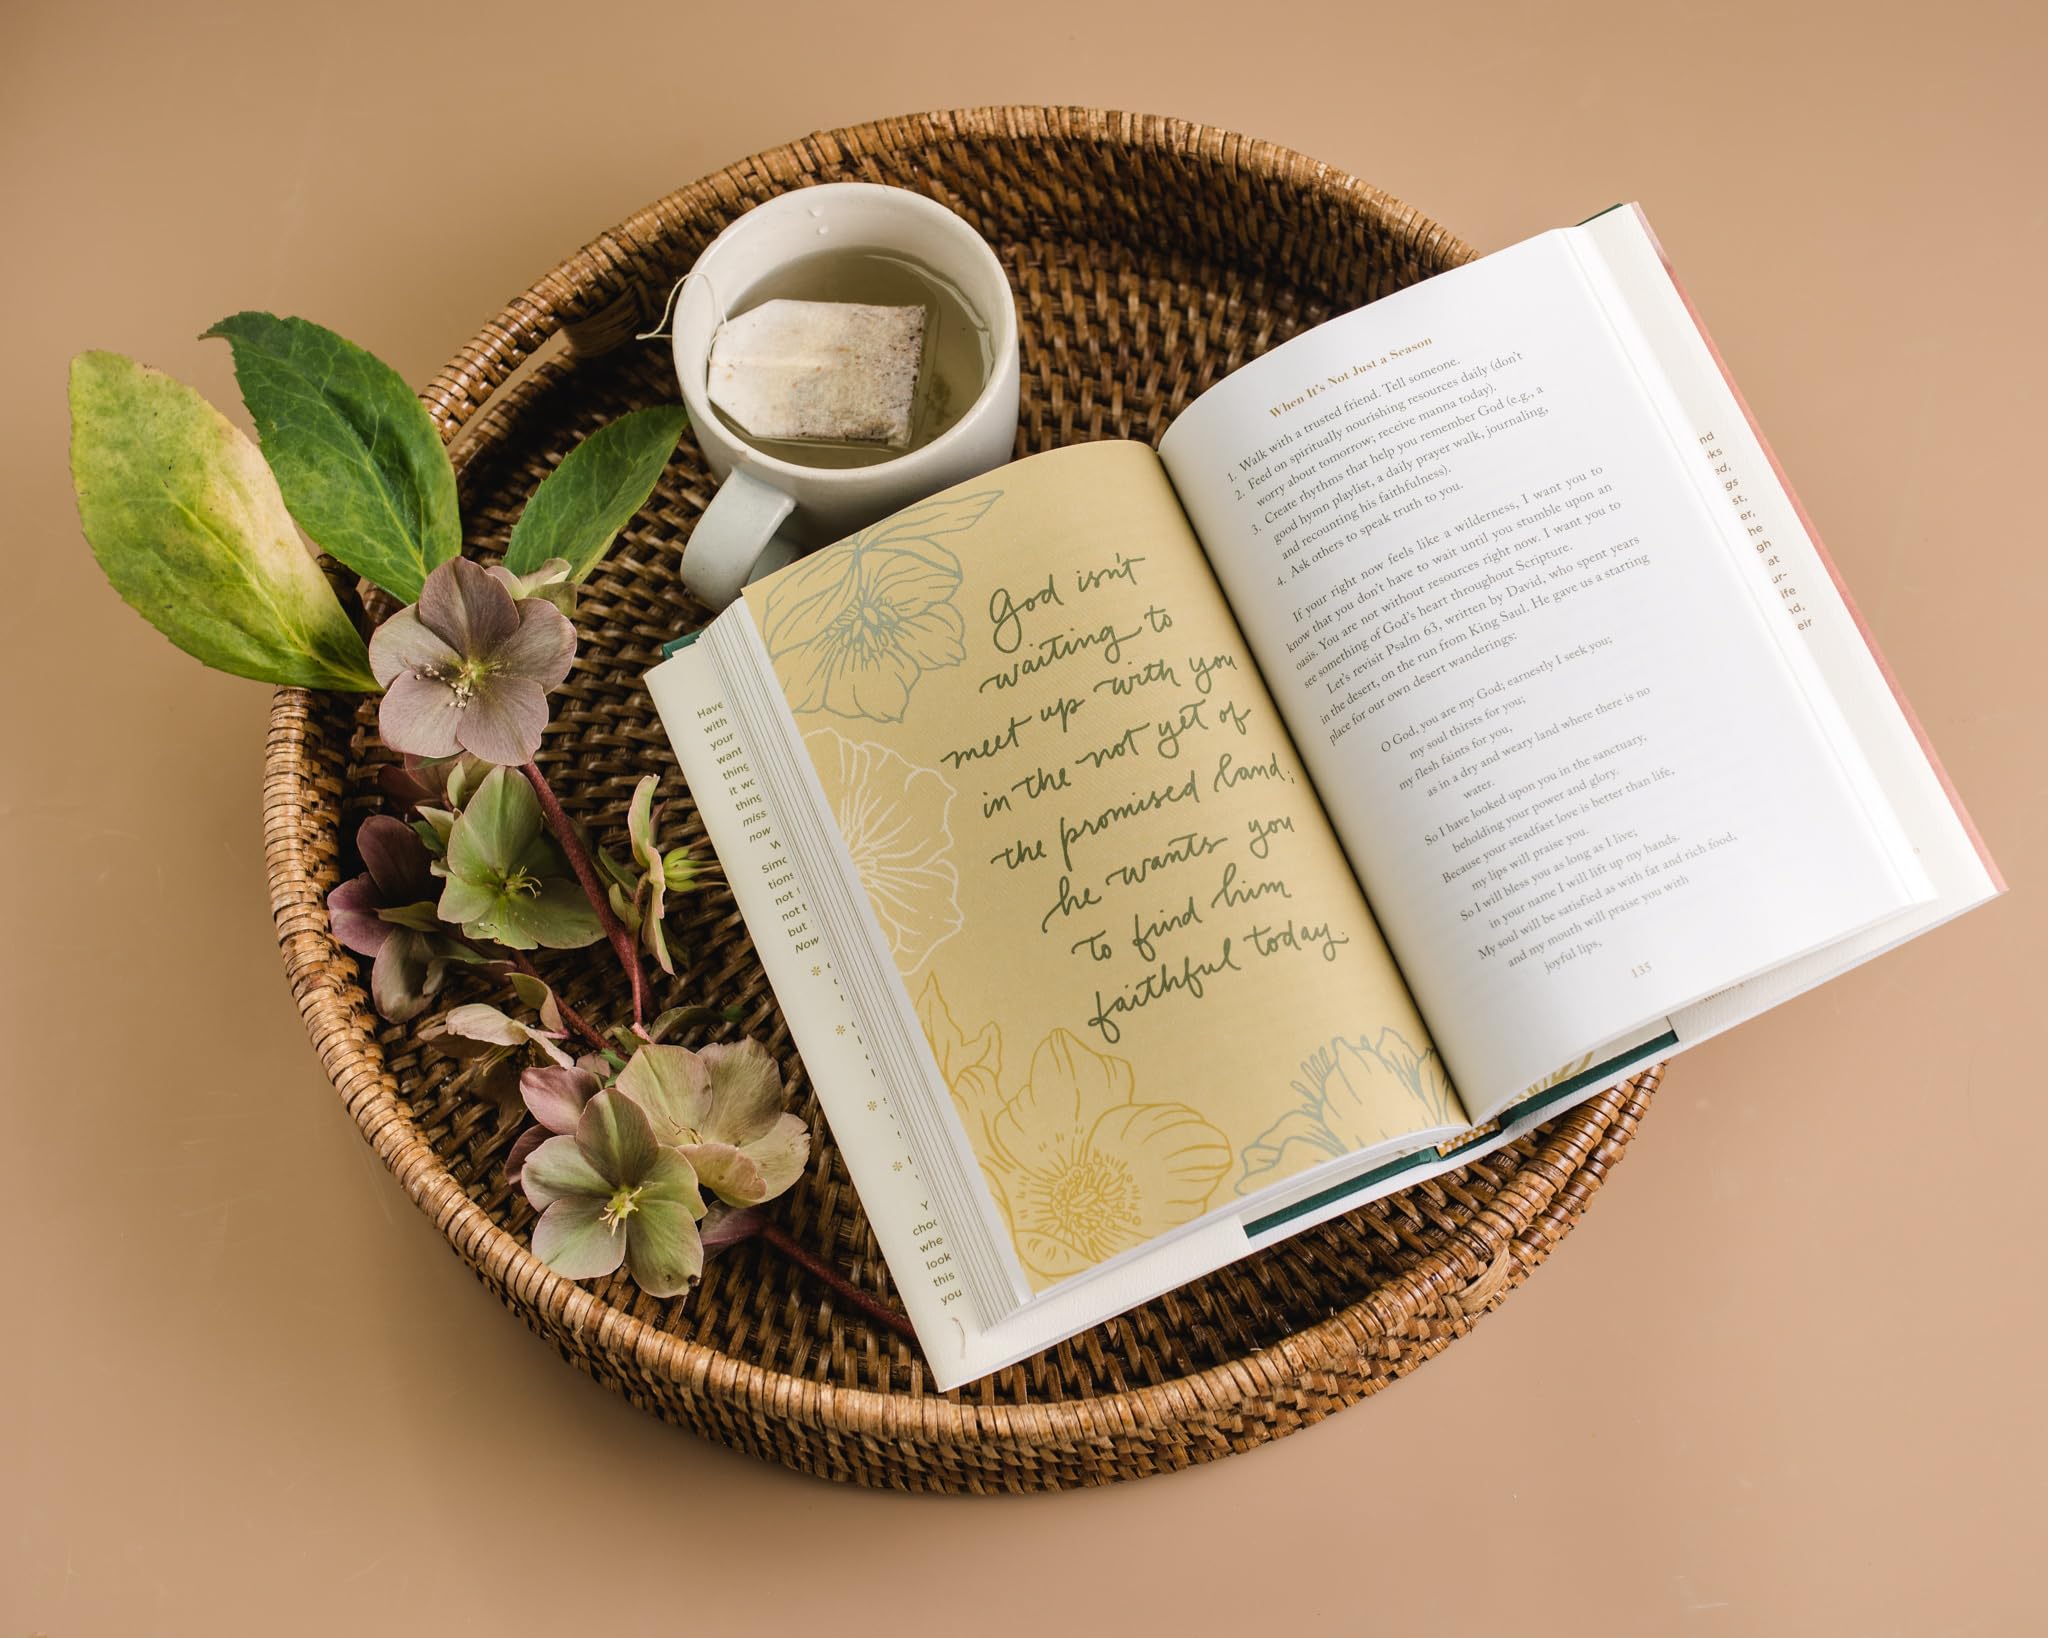 Have
with
your
want
thing
it wo
thing
miss
now
W
Simo
tions
not
not t
but
Now
Y
choo
whe
look
this
you
God isn't
waiting to
meet up with you
in the not yet of
the promised land;
he wants you
to find him
faithful today.
When It's Not Just a Season
1. Walk with a trusted friend. Tell someone.
2. Feed on spiritually nourishing resources daily (don't
worry about tomorrow; receive manna today).
3. Create rhythms that help you remember God (e.g., a
good hymn playlist, a daily prayer walk, journaling,
and recounting his faithfulness).
4. Ask others to speak truth to you.
If your right now feels like a wilderness, I want you to
know that you don't have to wait until you stumble upon an
oasis. You are not without resources right now. I want you to
see something of God's heart throughout Scripture.
Let's revisit Psalm 63, written by David, who spent years
in the desert, on the run from King Saul. He gave us a starting
place for our own desert wanderings:
O God, you are my God; earnestly I seek you;
my soul thirsts for you;
my flesh faints for you,
as in a dry and weary land where there is no
water.
So I have looked upon you in the sanctuary,
beholding your power and glory.
Because your steadfast love is better than life,
my lips will praise you.
So I will bless you as long as I live;
in your name I will lift up my hands.
My soul will be satisfied as with fat and rich food,
and my mouth will praise you with
joyful lips,
135
nd
ks
ed,
gs
st.
er,
he
gh
at
ur-
ife
nd,
eir